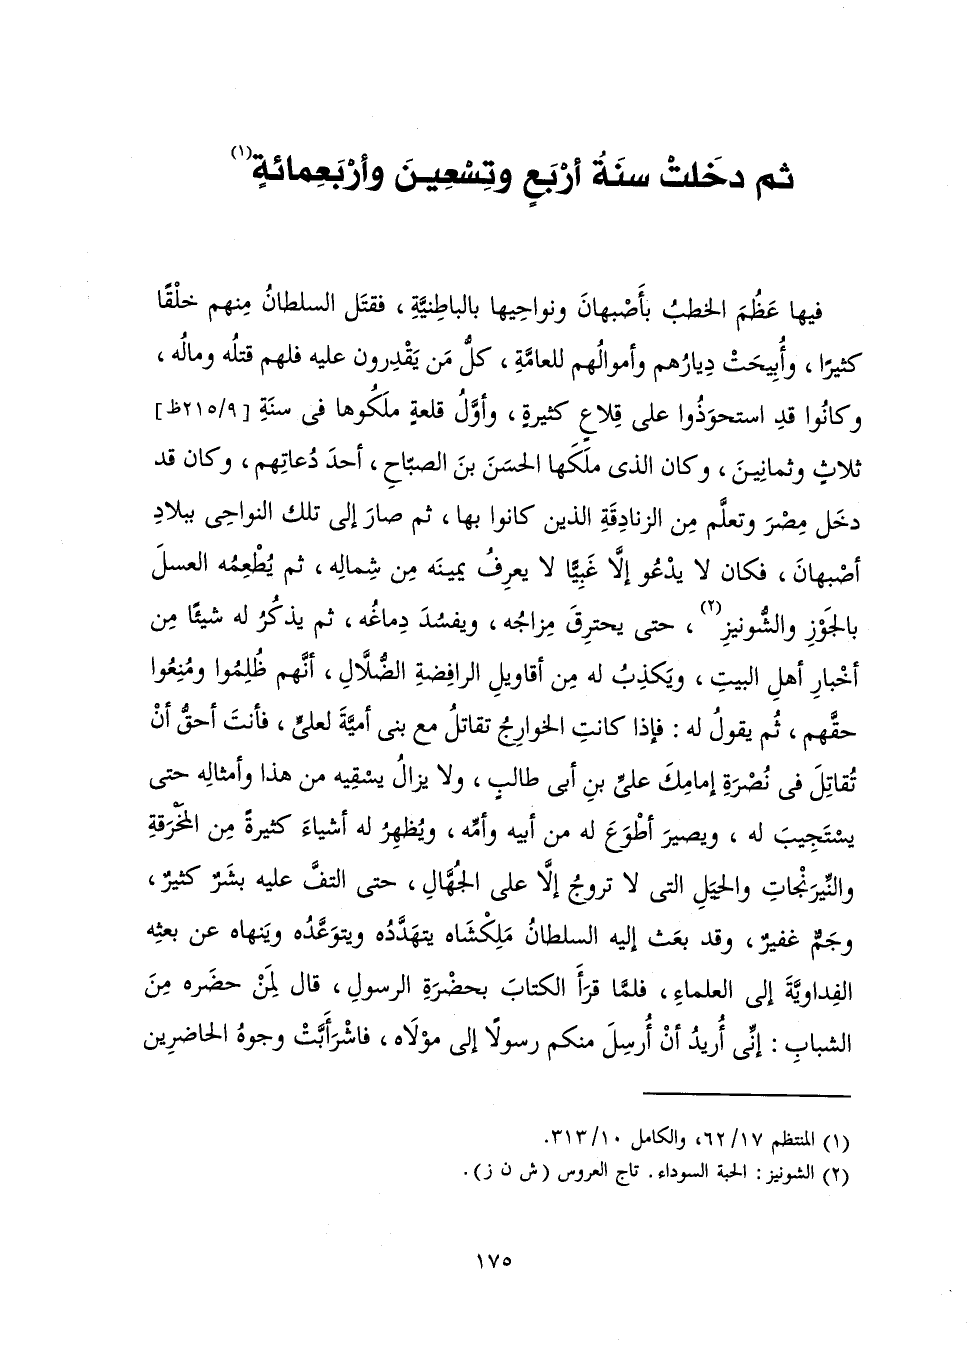 ثم دخَلتْ سنَةُ أرْبَعٍ وتِسْعِينَ وأرْبَعِمائةٍ(١)
فيها عَظُمَ الخطبُ بأَصْبهانَ ونواحِيها بالباطِنيَّةِ ، فقتَل السلطانُ مِنهم خلْقًا
كثيرًا ، وأُبِيحَتْ دِيارُهم وأموالُهم للعامَّةِ ، كلُّ مَن يَقْدِرون عليه فلهم قتلُه ومالُه ،
وكانُوا قدِ استحوَذُوا على قِلاعٍ كثيرةٍ ، وأوَّلُ قلعةٍ ملَكُوها فى سنَةِ [٢١٥/٩ظ]
ثلاثٍ وثمانِينَ ، وكان الذى ملَكَها الحَسَنَ بنَ الصبّاحِ ، أحدَ دُعاتِهم ، وكان قد
دخَل مِصْرَ وتعلَّم مِن الزنادِقَةِ الذين كانوا بها ، ثم صارَ إلى تلك النواحِى ببلادِ
أصْبهانَ ، فكان لا يدْعُو إلَّا غَبِيًّا لا يعرِفُ يمينَه مِن شِمالِه ، ثم يُطْعِمُه العسلَ
بالجَوْزِ والشُّونيزِ(٢) ، حتى يحترِقَ مِزاجُه ، ويفسُدَ دِماغُه ، ثم يذكُرُ له شيئًا مِن
أخْبارِ أهلِ البيتِ ، ويَكذِبُ له مِن أقاويلِ الرافِضةِ الضُّلَّالِ ، أنَّهم ظُلِمُوا ومُنِعُوا
حقَّهم ، ثُم يقولُ له : فإذا كانتِ الخوارِجُ تقاتلُ مع بنى أميَّةَ لعلىٍّ ، فأنتَ أحقُّ أنْ
تُقاتِلَ فى نُصْرَةِ إمامِكَ علىِّ بنِ أبى طالبٍ ، ولا يزالُ يسْقِيه من هذا وأمثالِه حتى
يسْتَجِيبَ له ، ويصيرَ أطْوَعَ له من أبيه وأمِّه ، ويُظهِرُ له أشياءَ كثيرةً مِن المَخْرَقةِ
والنِّيرَنْجاتِ والحِيَلِ التى لا تروجُ إلَّا على الجُهَّالِ ، حتى التفَّ عليه بشَرٌ كثيرٌ ،
وجَمٌّ غفيرٌ ، وقد بعَث إليه السلطانُ مَلِكْشَاه يتهَدَّدُه ويتوَعَّدُه ويَنهاه عن بعثِه
الفِداويَّةَ إلى العلماءِ ، فلمَّا قرَأَ الكتابَ بحضْرَةِ الرسولِ ، قال لِمَنْ حضَره مِنَ
الشبابِ : إنِّى أُريدُ أنْ أُرسِلَ منكم رسولًا إلى موْلَاه ، فاشْرَأَبَّتْ وجوهُ الحاضرِين
(١) المنتظم ٦٢/١٧، والكامل ٣١٣/١٠.
(٢) الشونيز : الحبة السوداء . تاج العروس (ش ن ز) .
١٧٥